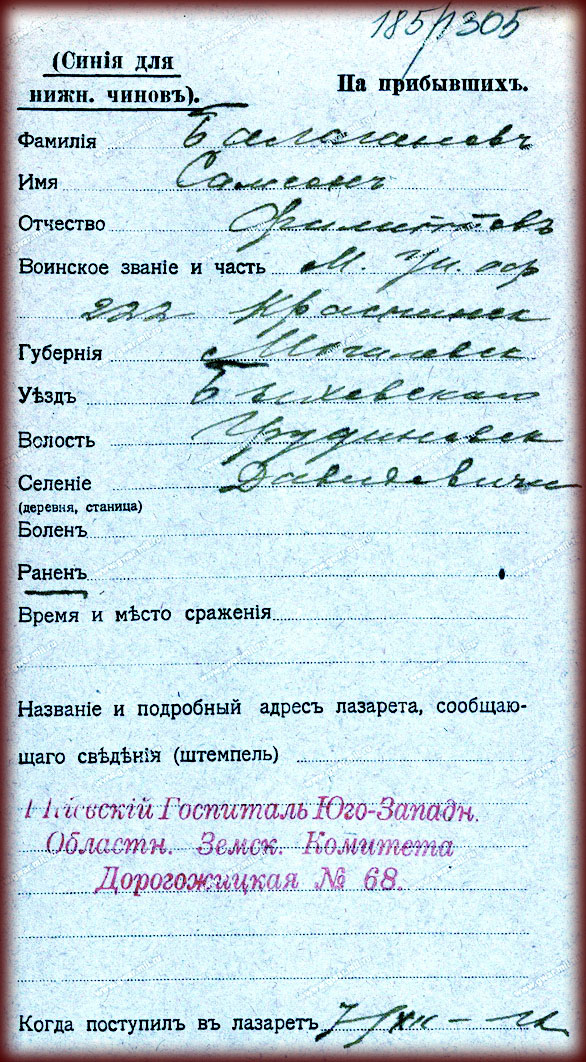 185/1305
(Синія для
нижн. чиновъ).
На прибывшихъ.
Фамилія Балагановъ
Имя Самсонъ
Отчество Филипповъ
Воинское званіе и часть М. Ун. оф
222 Краснинск
Губернія Могилевск
Уѣздъ Быховскаго
Волость Грудиновск
Селеніе Давидовичи
(деревня, станица)
Боленъ
Раненъ
Время и мѣсто сраженія
Названіе и подробный адресъ лазарета, сообщаю-
щаго свѣдѣнія (штемпель)
1 Кіевскій Госпиталь Юго-Западн.
Областн. Земск. Комитета
Дорогожицкая № 68.
Когда поступилъ въ лазаретъ 7/XII